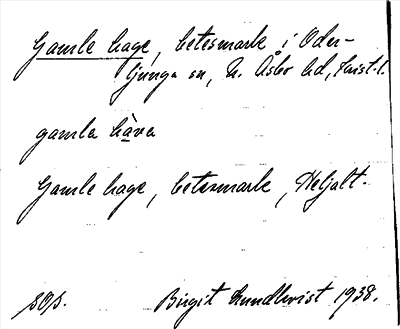 Gamle hage, betesmark i Oder-
ljunga sn, N. Åsbo hd, Krist. l.
gamla hàva
Gamle hage, betesmark, Heljalt.
SOS. Birgit Lundkvist 1938.